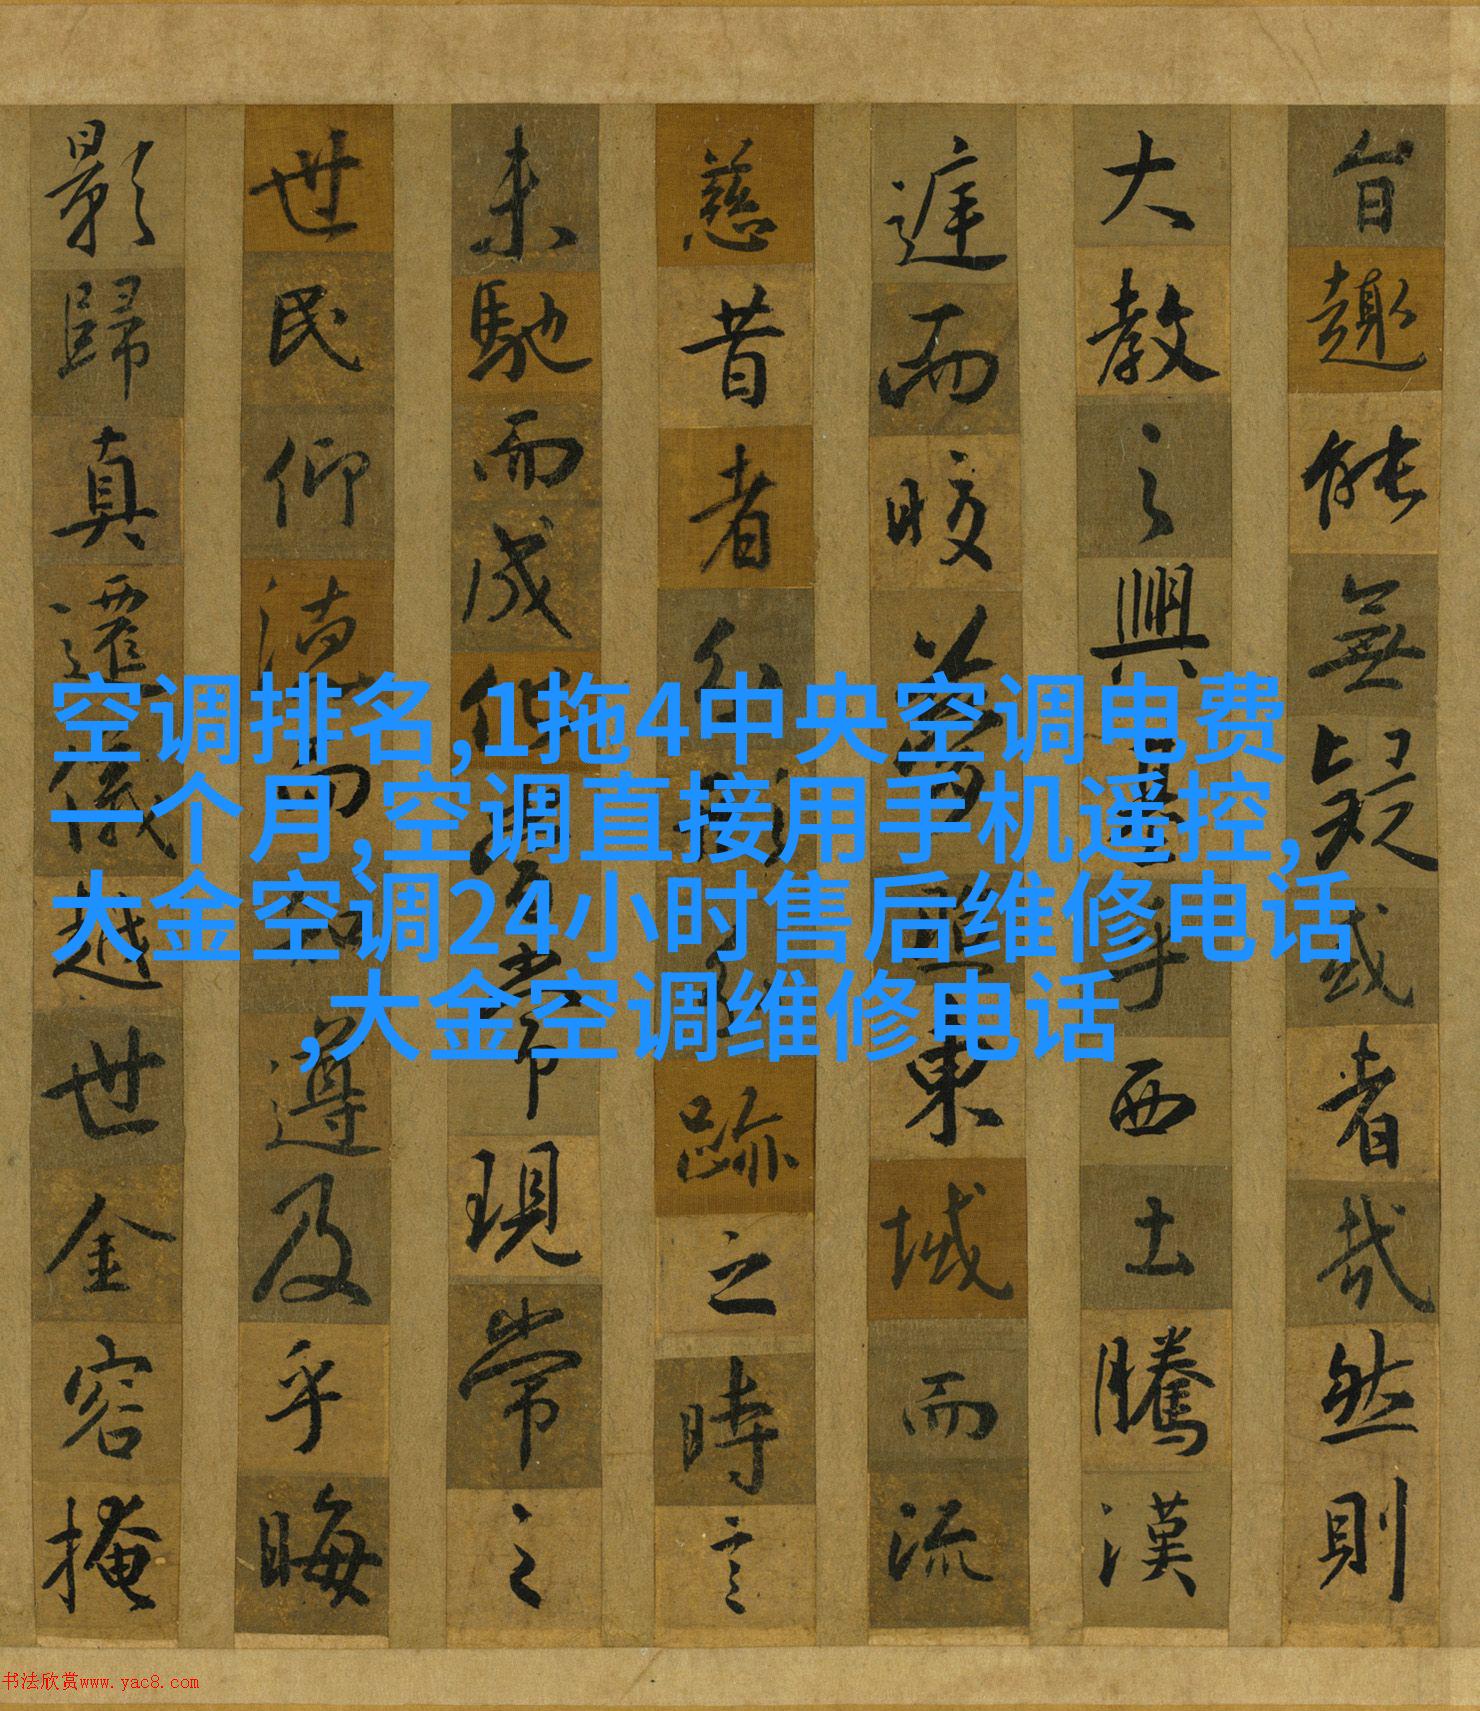 旨趣能無疑或者哉然則
大教之興基乎西土騰漢
庭而皎夢照東域而流
慈昔者分形分跡之時言
未馳而成化當常現常之
世民仰德而知遵及乎晦
影歸真遷儀越世金容掩
空调排名,1拖4中央空调电费
一个月,空调直接用手机遥控,
大金空调24小时售后维修电话
,大金空调维修电话
书法欣赏www.yac8.com